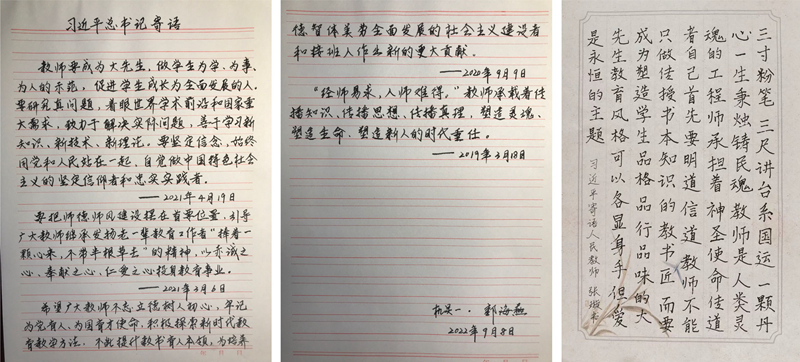 习近平总书记寄语
教师要成为大先生，做学生为学、为事、
为人的示范，促进学生成长为全面发展的人。
要研究真问题，着眼世界学术前沿和国家重
大需求，致力于解决实际问题，善于学习新
知识、新技术、新理论。要坚定信念，始终
同党和人民站在一起，自觉做中国特色社会
主义的坚定信仰者和忠实实践者。
——2021年4月19日
要把师德师风建设摆在首要位置，引导
广大教师继承发扬老一辈教育工作者“捧着一
颗心来，不带半根草去”的精神，以赤诚之
心、奉献之心、仁爱之心投身教育事业。
——2021年3月6日
希望广大教师不忘立德树人初心，牢记
为党育人、为国育才使命，积极探索新时代教
育教学方法，不断提升教书育人本领，为培养
德智体美劳全面发展的社会主义建设者
和接班人作出新的更大贡献。
——2020年9月9日
“经师易求，人师难得。”教师承载着传
播知识、传播思想、传播真理，塑造灵魂、
塑造生命、塑造新人的时代重任。
——2019年3月18日
郭海燕
2022年9月8日
三寸粉笔 三尺讲台系国运 一颗丹
心一生秉烛铸民魂 教师是人类灵
魂的工程师承担着神圣使命传道
者自己首先要明道信道教师不能
只做传授书本知识的教书匠 而要
成为塑造学生品格品行品味的大
先生教育风格可以各显身手但爱
是永恒的主题
习近平寄语人民教师 张